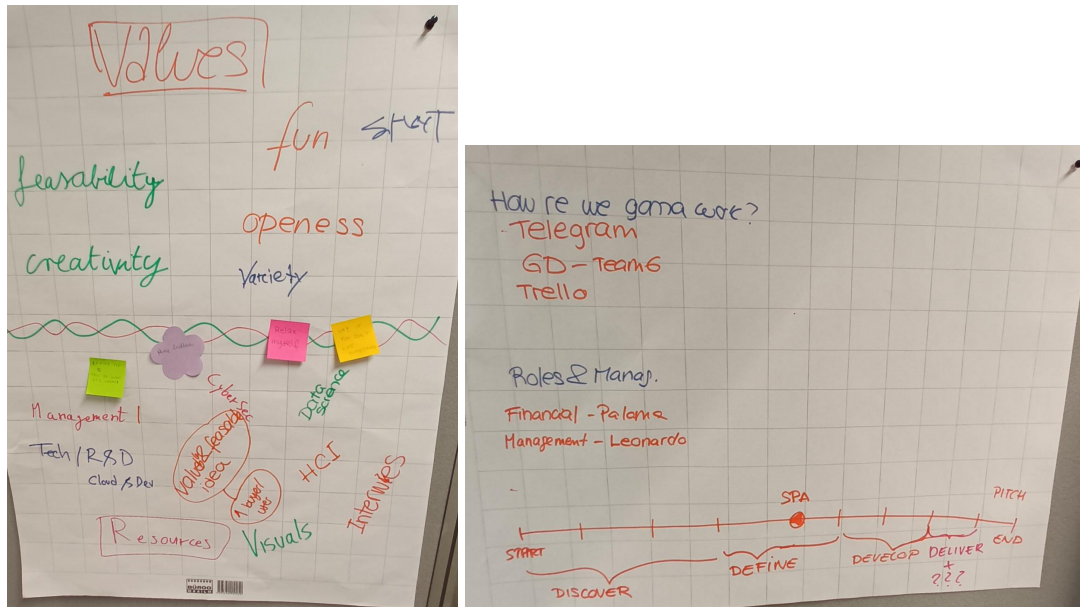 Values
fun
feasability
openess
creativity
Variety
Relax
myself
Cyber Sec
Data
science
Management
Tech/R&D
Cloud/&Dev
idea
1 buyer/
user
HCI
Interwies
Resources
Visuals
How're we gonna work?
Telegram
GD - Team6
Trello
Roles & Manag.
Financial - Paloma
Management - Leonardo
SPA
PITCH
START
END
DISCOVER
DEFINE
DEVELOP
DELIVER
+
???